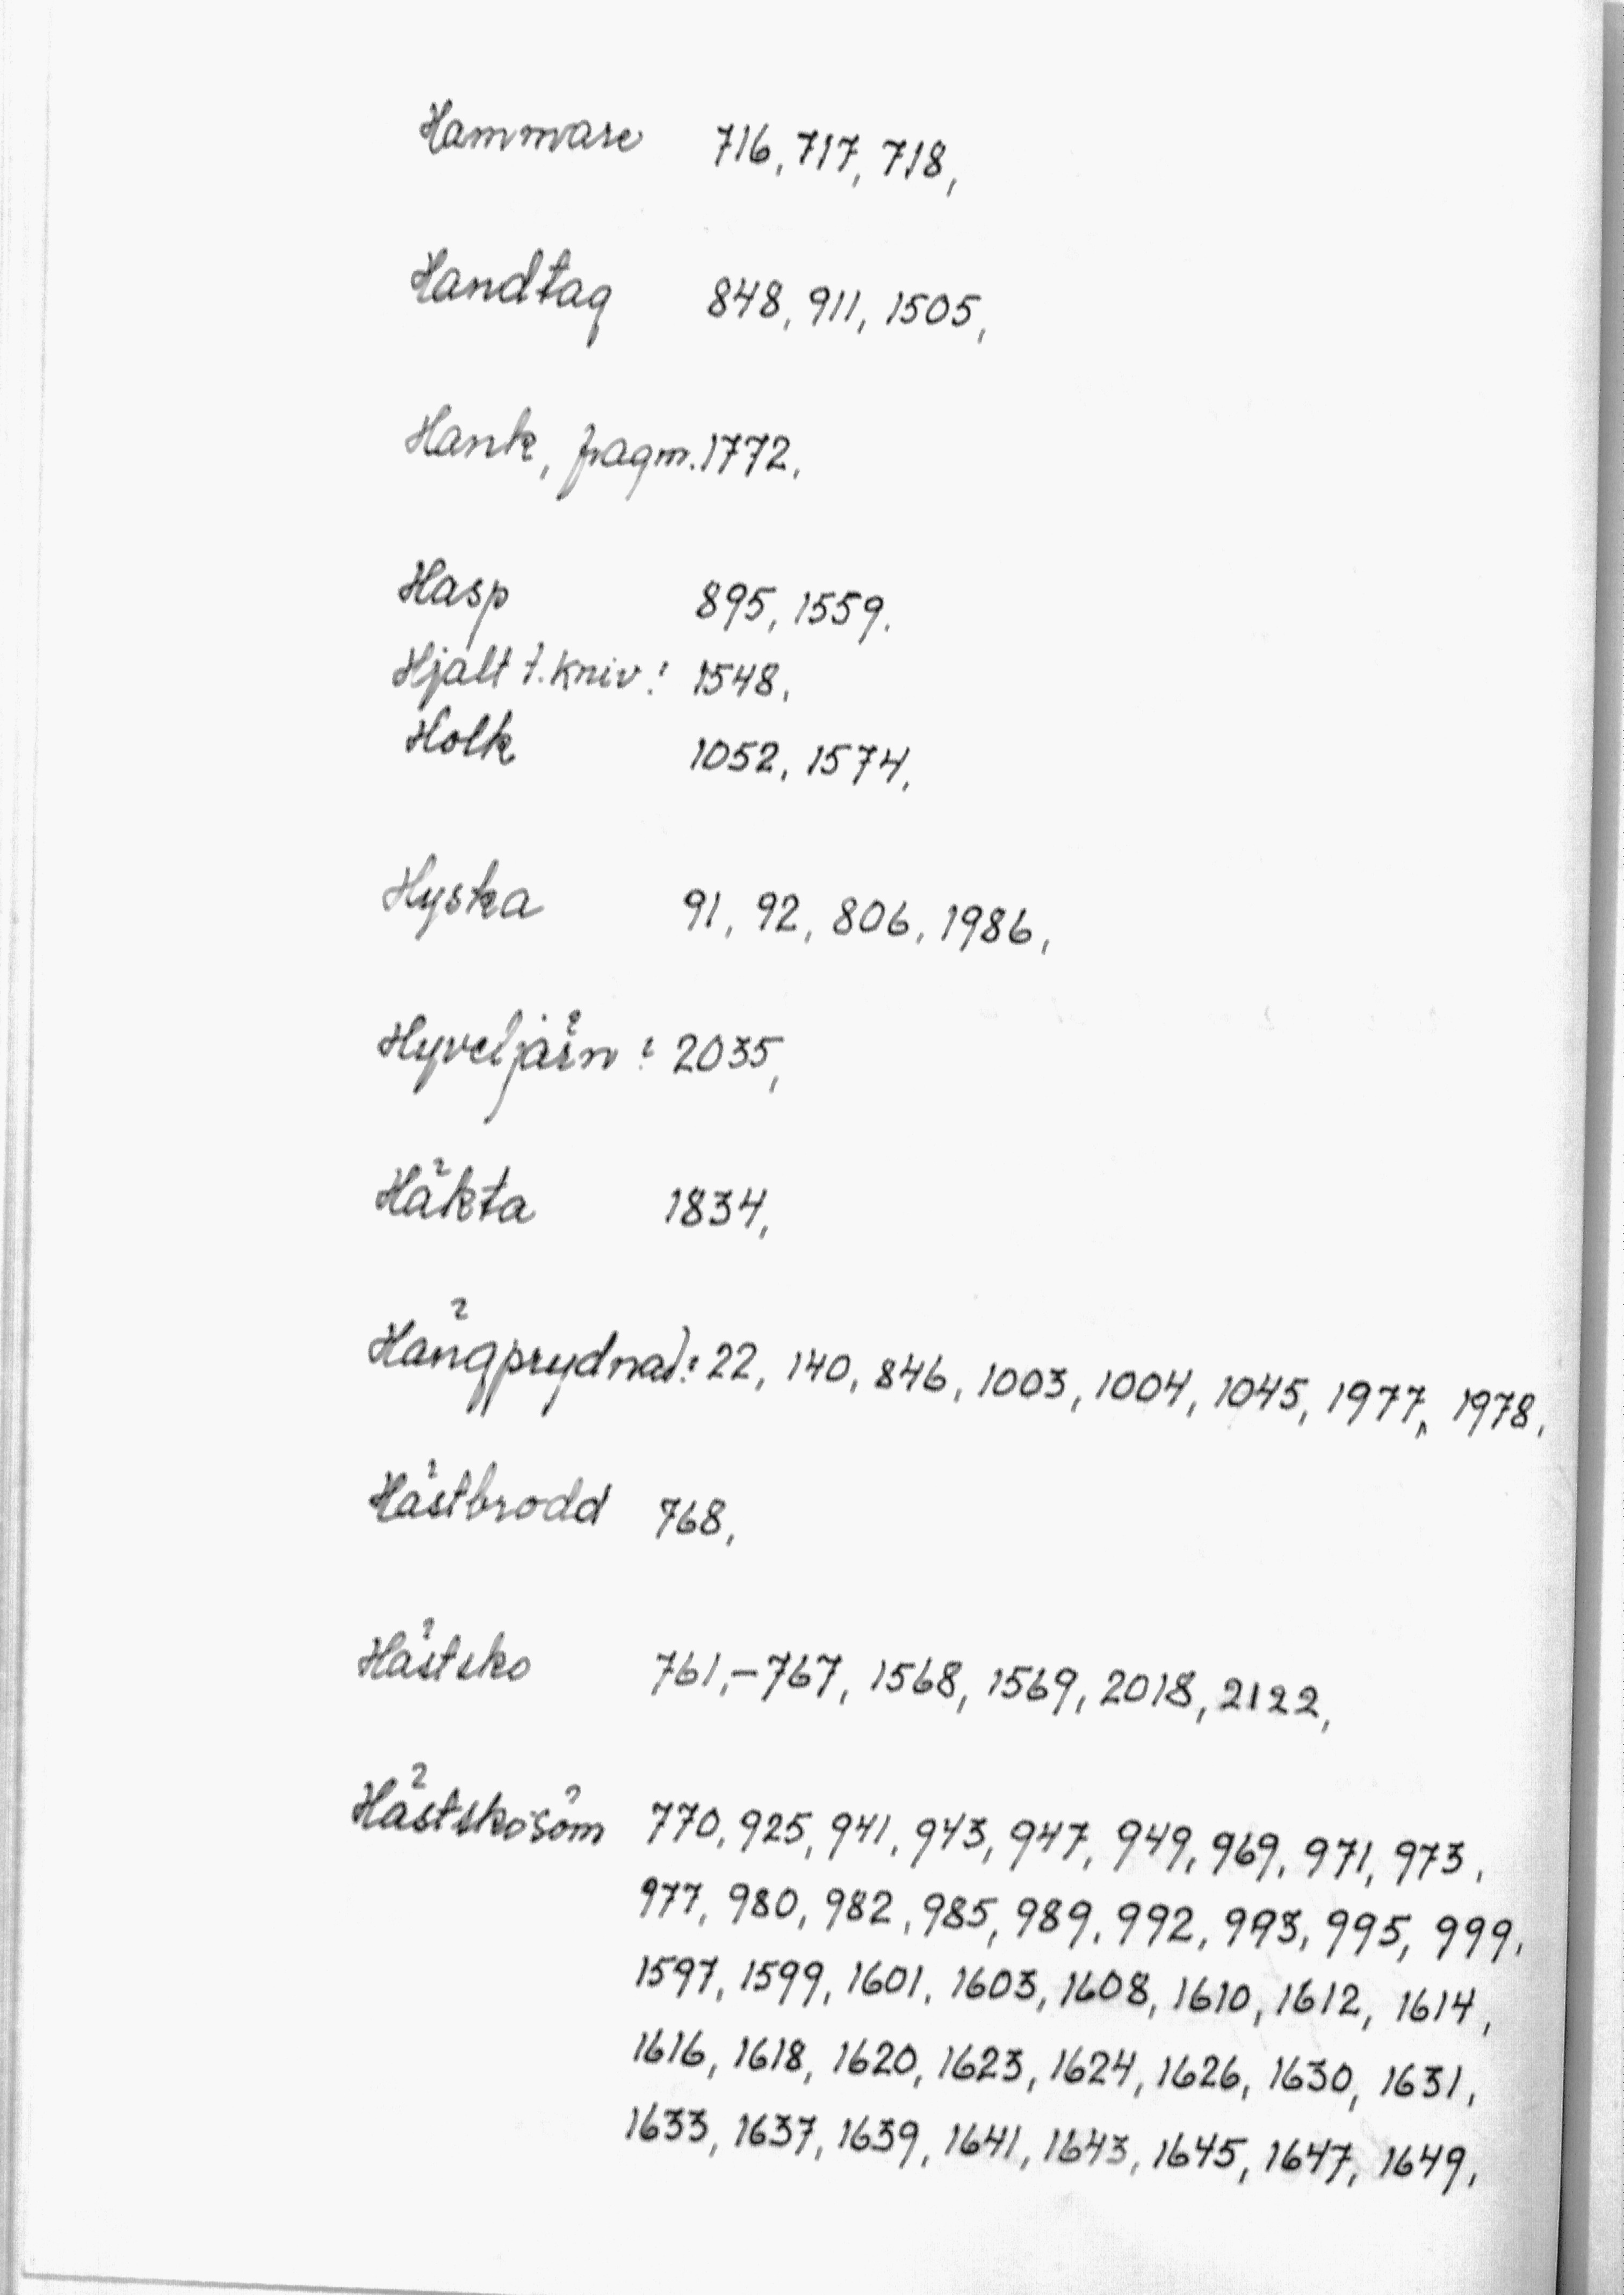 Hammare 716, 717, 718,
Handtag 848, 911, 1505,
Hank, fragm. 1772.
Hasp 895, 1559.
Hjalt t. kniv: 1548.
Holk 1052, 1574,
Hyska 91, 92, 806, 1986,
Hyveljärn: 2035,
Häkta 1834,
Hängprydnad: 22, 140, 846, 1003, 1004, 1045, 1977, 1978,
Hästbrodd 768,
Hästsko 761,-767, 1568, 1569, 2018, 2122,
Hästskosöm 770, 925, 941, 943, 947, 949, 969, 971, 973,
977, 980, 982, 985, 989, 992, 993, 995, 999,
1597, 1599, 1601, 1603, 1608, 1610, 1612, 1614,
1616, 1618, 1620, 1623, 1624, 1626, 1630, 1631,
1633, 1637, 1639, 1641, 1643, 1645, 1647, 1649,